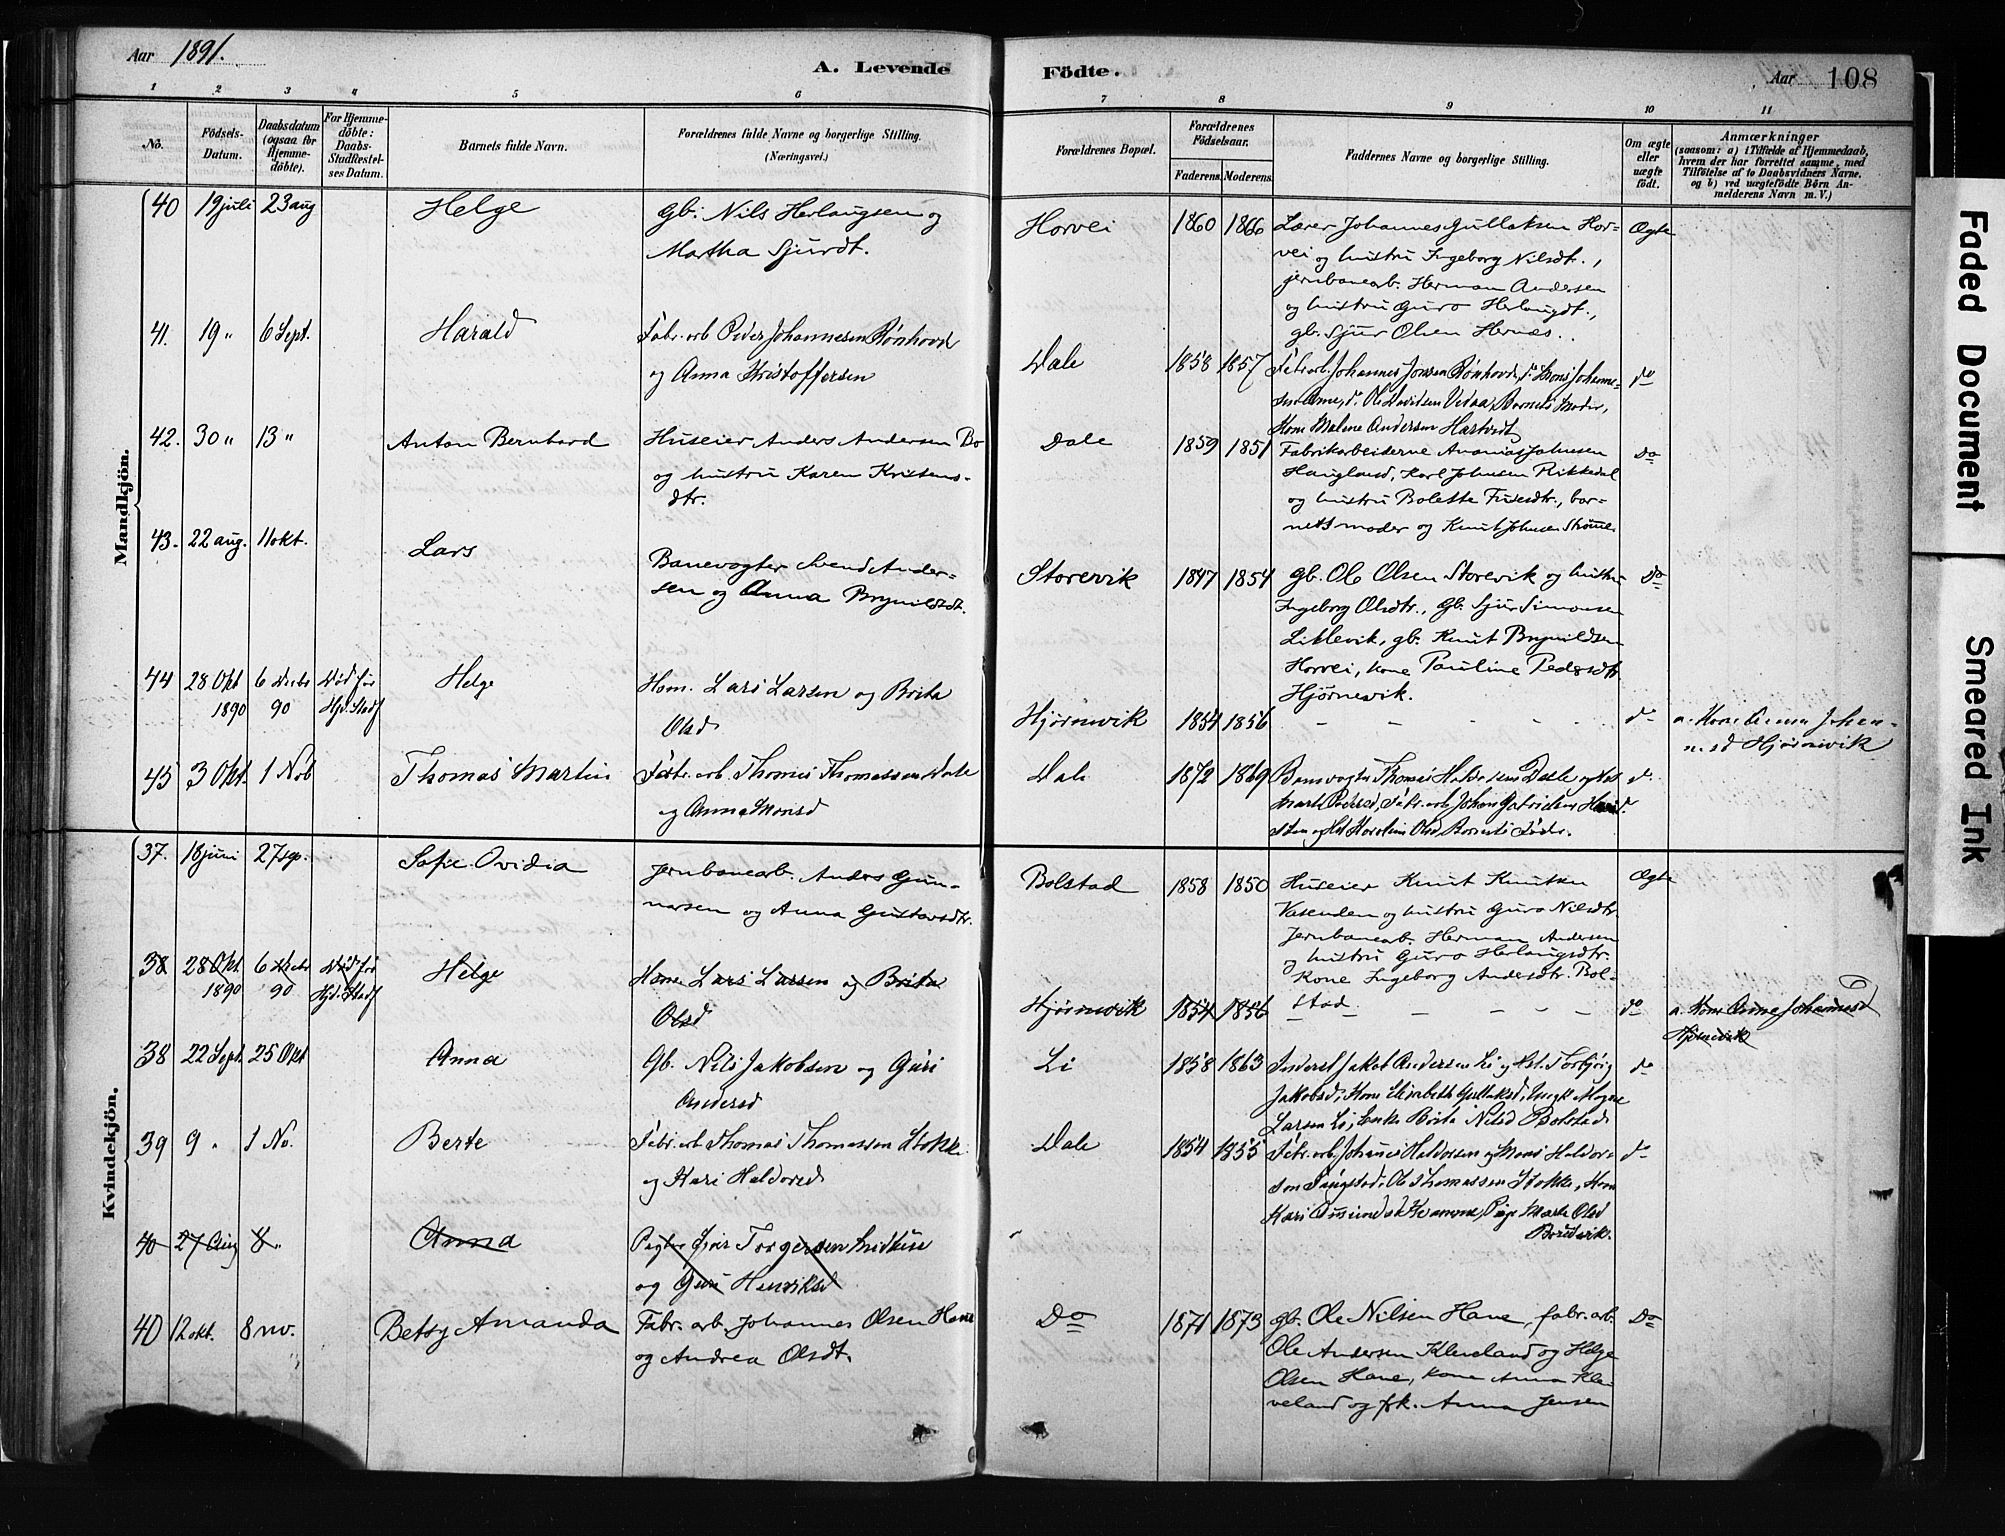 Aar 1891.
A. Levende Födte.
Aar 108
1 2 3 4 5 6 7 8 9 10 11
No.
Födsels-Datum.
Daabsdatum (ogsaa for Hjemme-döbte).
For Hjemme-döbte: Daabs-Stadfæstel-ses Datum.
Barnets fulde Navn.
Forældrenes fulde Navne og borgerlige Stilling.
(Næringsvei.)
Forældrenes Bopæl.
Forældrenes Födselsaar.
Faderens. Moderens.
Faddernes Navne og borgerlige Stilling.
Om ægte eller uægte födt.
Anmærkninger
(saasom: a) i Tilfælde af Hjemmedaab,
hvem der har forrettet samme, med
Tilföielse af to Daabsvidners Navne.
og b) ved uægtefödte Börn An-
melderens Navn m. V.)
Mandkjön.
40 19 juli 23 aug Helge Gb. Nils Herlaugsen og
Martha Sjurdt.
Horvei 1860 1866 Lærer Johannes Gullaksen Hor-
vei og hustru Ingeborg Nilsdt.,
jernbanearb. Herman Andersen
og hustru Guro Herlaugdt.,
gb. Sjur Olsen Hernæs.
41. 19 " 6 Sept. Harald Fabr. arb Peder Johannesen Rønhovde
og Anna Kristoffersen
Dale 1858 1857 Fabr. arb. Johannes Jonsen Rønhovde, do Mons Johanne-
do Ole Davidsen Vedaa, Barnets Moder,
Kone Malene Andersen Hartveit
do
42. 30 " 13 " Anton Bernhard Huseier Anders Andersen Bo
og hustru Karen Kristens-
dtr.
Dale 1859 1851 Fabrikarbeiderne Ananias Johnsen
Haugland, Karl Johnsen Rikkedal
og hustru Bolette Fusedtr., bar-
nets moder og Knut Johnsen Strømme
Do
43. 22 aug. 11 okt. Lars Banevogter Svend Ander-
sen og Anna Brynildsdt.
Storevik 1847 1854 gb. Ole Olsen Storevik og hustru
Ingeborg Olsdtr., Gb. Sjur Simonsen
Liklevik, gb. Knut Brynildsen
Horvei, kone Pauline Pedersdtr
Hjørnevik.
Do
44 28 Okt 1890 6 Decbr 90 Død før Hjd. Stadf Helge Hom. Lars Larsen og Brita
Olsd
Hjørnevik 1854 1856 – – – – – do a. Kone Anna Johan-
nesd Hjørnevik
45 3 Okt. 1 Nob Thomas Martin Fabr. arb. Thomas Thomassen Dale
og Anna Monsd
Dale 1872 1869 Banevogter Thomas Dale og Kone
Marte Pedersd, Fabr. arb Johan Gabrielsen
og Karoline Olsd, Barnets Fader.
do
Kvindekjön.
37. 18 juni 27 sep. Sofie Ovidia Jernbanearb. Anders Gun-
narsen og Anna Gustavsdtr.
Bolstad 1858 1850 Huseier Knut Knutsen
Vasenden og hustru Guro Nilsdtr.
Jernbanearb. Herman Andersen
og hustru Guro Herlaugsdtr.
Kone Ingeborg Andersdtr. Bol-
stad
Ægte
38 28 Okt. 1890 6 Decbr 90 Død før Hjd. Stadf Helge Hom. Lars Larsen og Brita
Olsd
Hjørnevik 1854 1856 – – – – – do a. Kone Anna Johannesd
Hjørnevik
38 22 Sept. 25 Okt Anna Gb. Nils Jakobsen og Guri
Andersd
Li 1858 1863 Inderst Jakob Andersen Li og Hst. Torbjørg
Jakobsd, Kone Elisabeth Gullaksd, Ungk. Mogne
Larsen Li, Enke Brita Nilsd Bolstad
do
39 9 " 1 No. Berte Fabr. arb Thomas Thomassen Stokke
og Kari Haldorsd
Dale 1854 1855 Fabr. arb. Johannes Haldorsen og Mons Haldor-
sen Fangstad, Ole Thomassen Stokke, Kone
Kari Pige Marta Olsd
do
40 27 Aug 8 " Anna Torgersen Midthus
og Guri Henriksd
40 12 okt. 8 nov. Betsy Amanda Fabr. arb. Johannes Olsen Hane
og Andrea Olsdt.
Do 1871 1873 gb. Ole Nilsen Hane, fabr. arb.
Ole Andersen Kleveland og Helge
Olsen Hane, kone Anna Kle-
veland og frk. Anna Jensen
Do
Faded Document
Smeared Ink